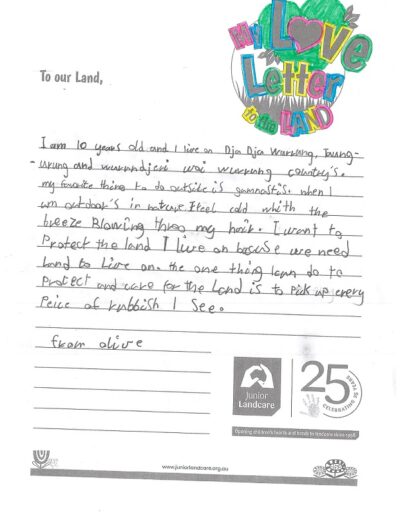 My Love
Letter
to the LAND
To our Land,
I am 10 years old and I live on Dja Dja Wurwung, Toung-
-urung and wurrundjeri woi wurrung country's.
my favorite thing to do outside is gymnastis. when I
am outdoor's in nature. I feel cold whith the
breeze Blowing throg my hair. I want to
Protect the land I live on becuse we need
Land to Live on. the one thing I can do to
Protect and care for the Land is to Pick up every
Peice of rubbish I See.
from olive
Junior
Landcare
25
CELEBRATING 25 YEARS
Opening children's hearts and minds to landcare since 1998
www.juniorlandcare.org.au